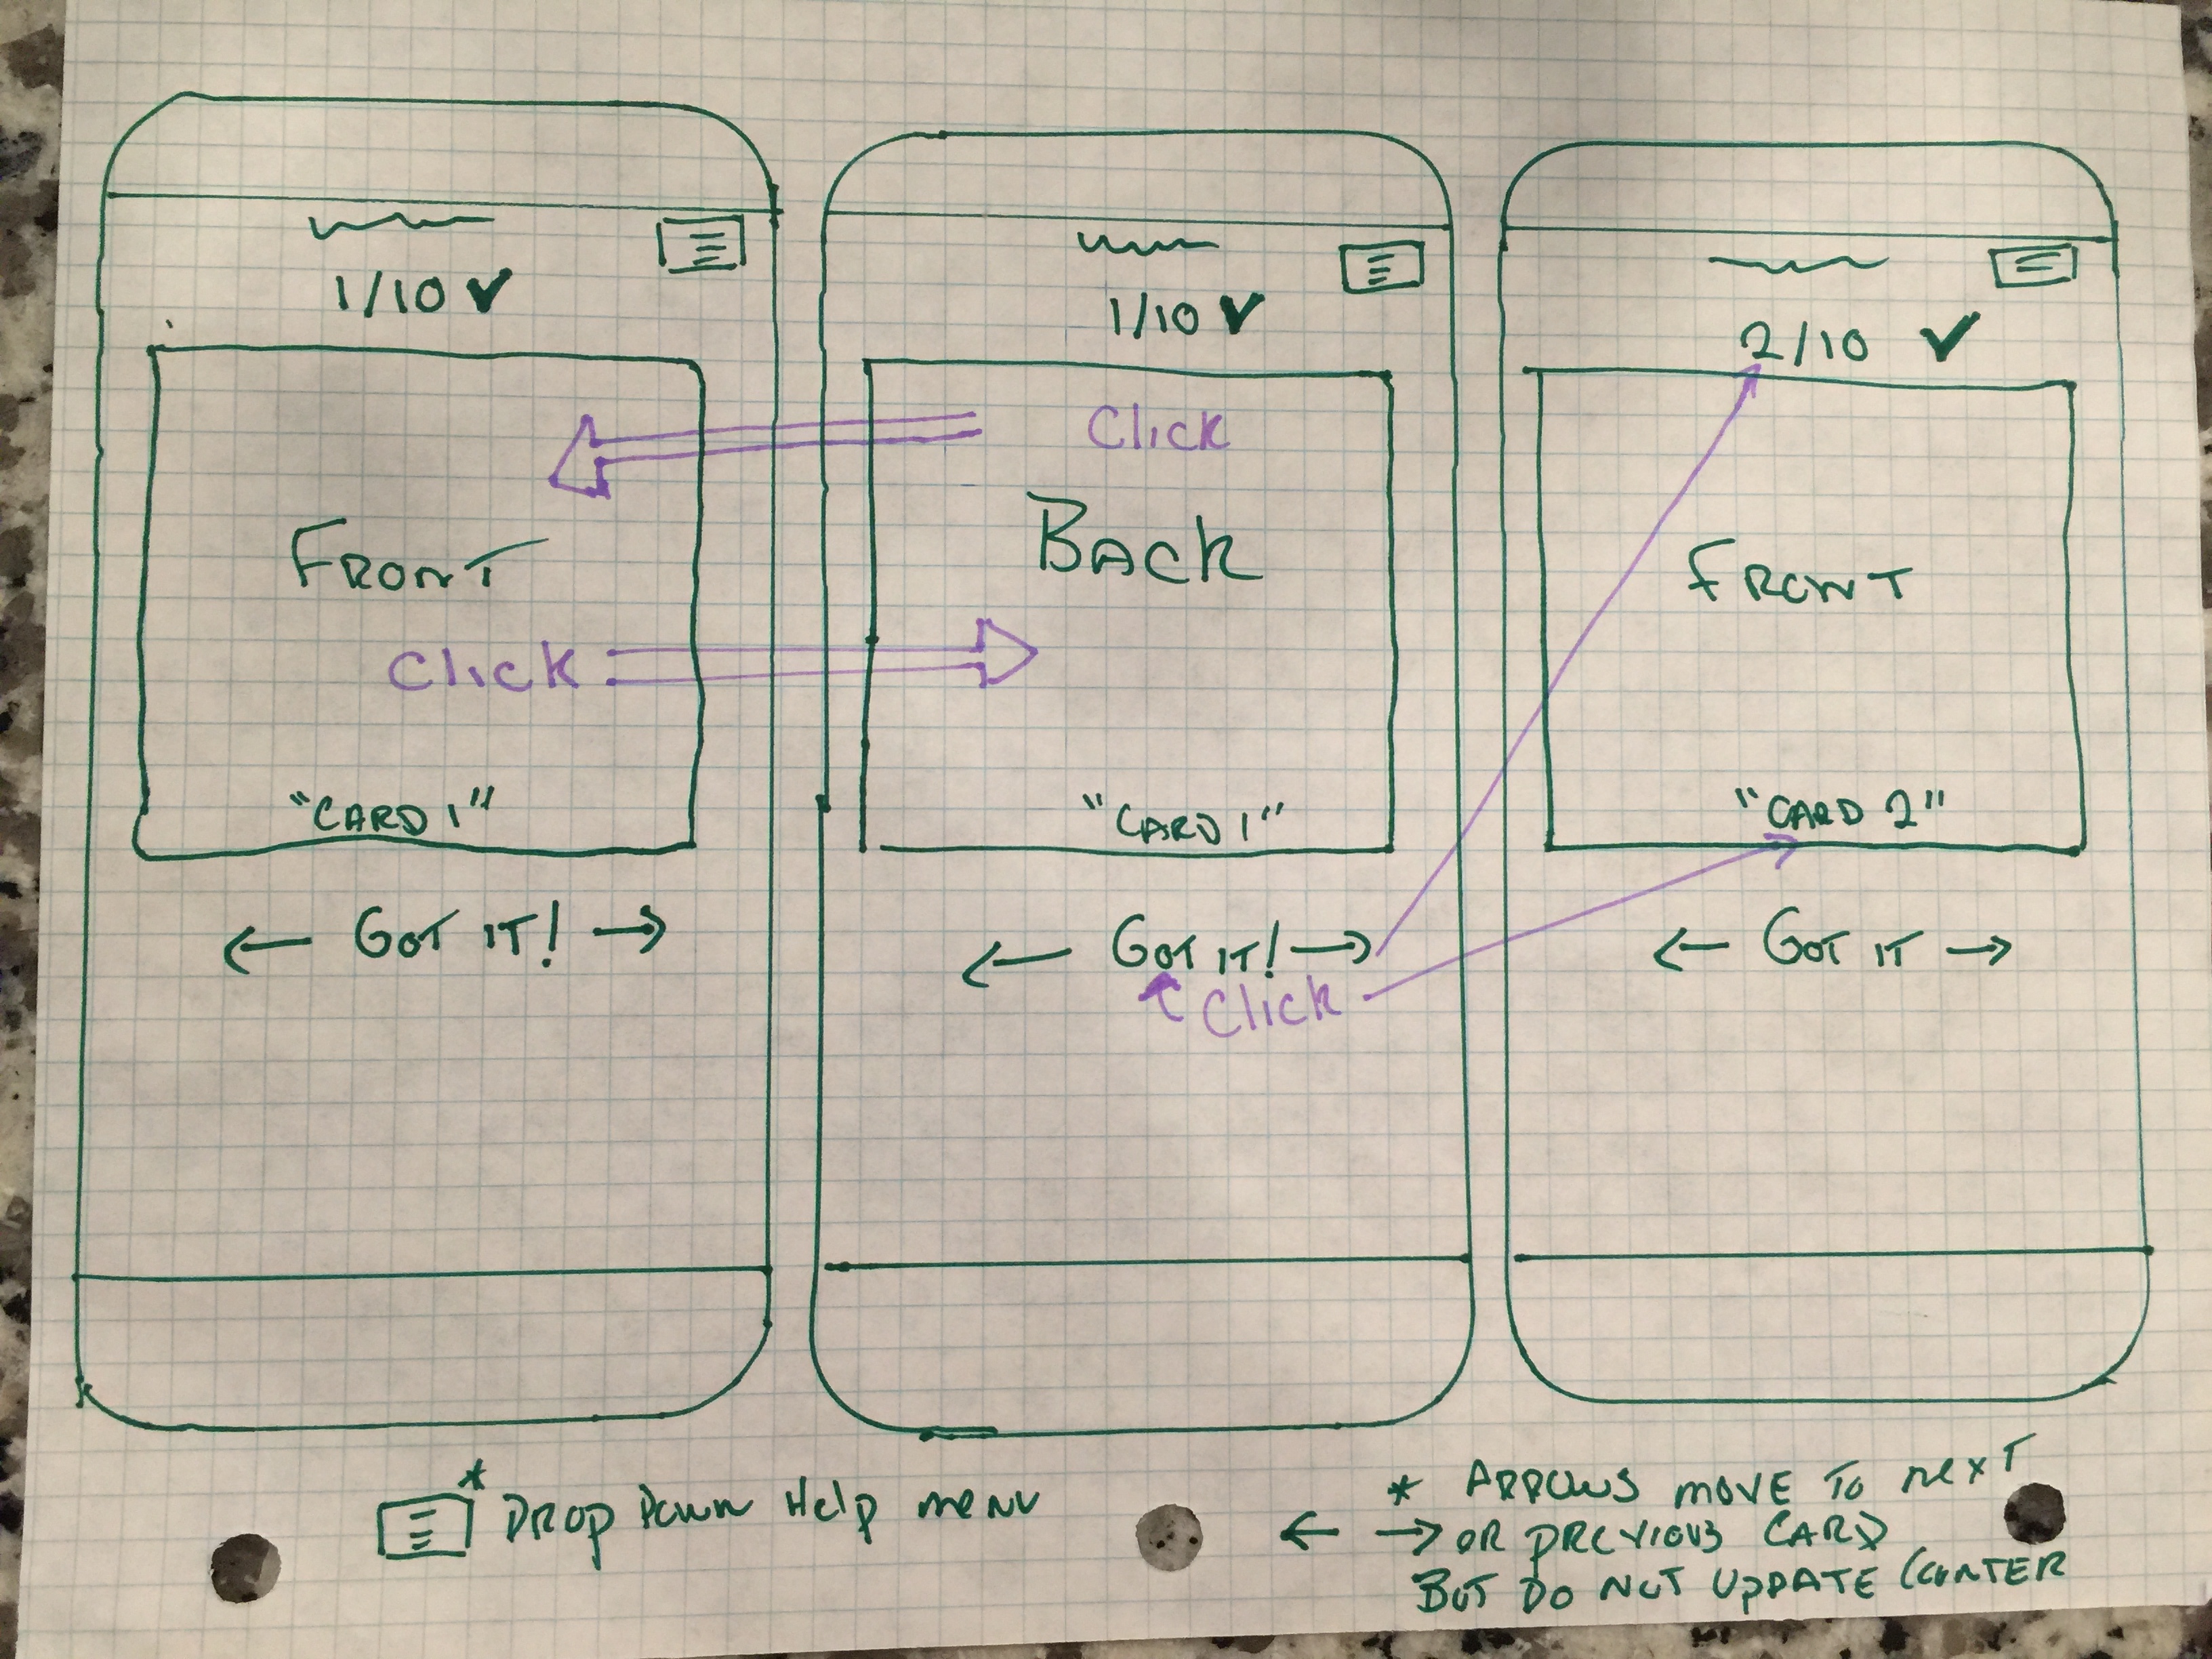 1/10 ✓
FRONT
Click
"CARD 1"
← GOT IT! →
1/10 ✓
Click
BACK
"CARD 1"
← GOT IT! →
Click
2/10 ✓
FRONT
"CARD 2"
← GOT IT →
* DROP DOWN Help menu
* ARROWS MOVE TO NEXT
← → OR PREVIOUS CARD
BUT DO NOT UPDATE COUNTER